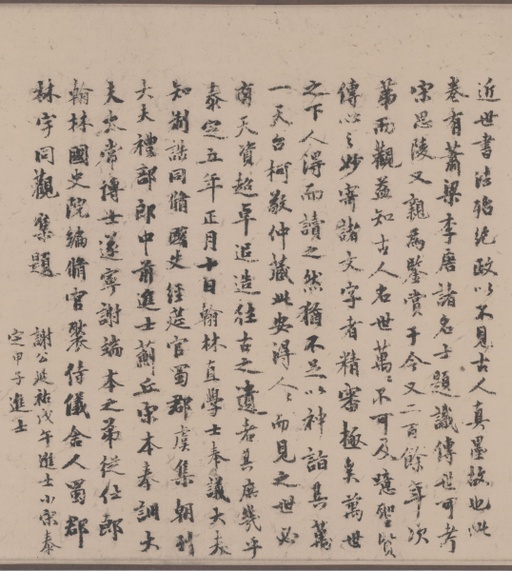 近世書法殆絕政以不見古人真墨故也此
卷有蕭梁李唐諸名士題識傳世可考
宋思陵又親為鑒賞于今又二百餘年次
第而觀益知古人名世萬萬不可及噫聖賢
傳心之妙寄諸文字者精審極矣萬世
之下人得而讀之然猶不足以神詣其萬
一天台柯敬仲藏此安得人人而見之世必
有天資超卓追造往古之遺者其庶幾乎
泰定五年正月十日翰林直學士奉議大夫
知制誥同脩國史經筵官蜀郡虞集朝列
大夫禮部郎中前進士薊丘宋本奉訓大
夫太常博士遂寧謝端本之弟從仕郎
翰林國史院編脩官褧侍儀舍人蜀郡
林宇同觀集題
謝公延祐戊午進士小宋泰
定甲子進士